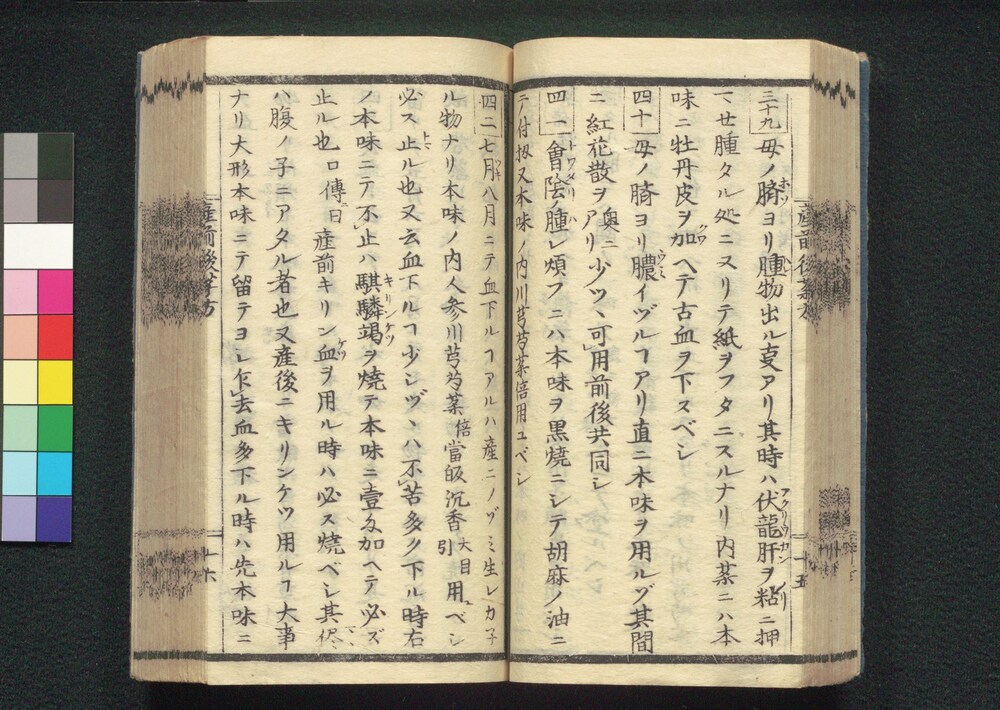 三十九 母ノ臍ヨリ腫物出ル叓アリ其時ハ伏龍肝ヲ粘ニ押
ホソ アクリウカン ノリ
世腫タル処ニヌリテ紙ヲフタニスルナリ内薬ニハ本
味ニ牡丹皮ヲ加ヘテ古血ヲ下スベシ
クワ
四十 母ノ臍ヨリ膿イヅルヿアリ直ニ本味ヲ用ルゾ其間
ウミ
ニ紅花散ヲ奥ニアリ少ツヽ可用前後共同シ
四一 會陰ノ腫レ煩フニハ本味ヲ黒焼ニシテ胡麻ノ油ニ
トワタリ ハ
テ付扨又本味ノ内川芎芍薬倍用ユベシ
四二 七月八月ニテ血下ルヿアルハ産ニノゾミ生レカ子
ツキ
ル物ナリ本味ノ内人参川芎芍薬倍當皈沉香大目引用ユベシ
必ス止ル也又云血下ルヿ少シヅヽハ不苦多ク下ル時右
ノ本味ニテ不止ハ騏驎竭ヲ焼テ本味ニ壹匁加ヘテ必ズ
キリンケツ
止ル也口傳ニ曰産前キリン血ヲ用ル時ハ必ス焼ベシ其侭
ケツ
ハ腹ノ子ニアタル者也又産後ニキリンケツ用ルヿ大事
ナリ大形本味ニテ留テヨシ乍去血多下ル時ハ先本味ニ
十五
十六